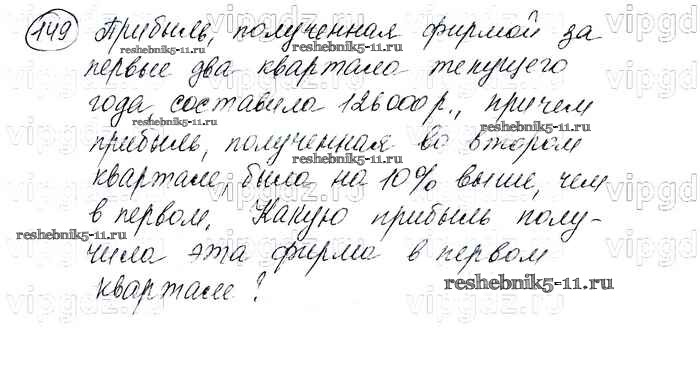 149 Прибыль, полученная фирмой за
первые два квартала текущего
года составила 126000р., причем
прибыль, полученная во втором
квартале, была на 10% выше, чем
в первом. Какую прибыль полу-
чила эта фирма в первом
квартале?
reshebnik5-11.ru
reshebnik5-11.ru
reshebnik5-11.ru
reshebnik5-11.ru
reshebnik5-11.ru
vipgdz.ru